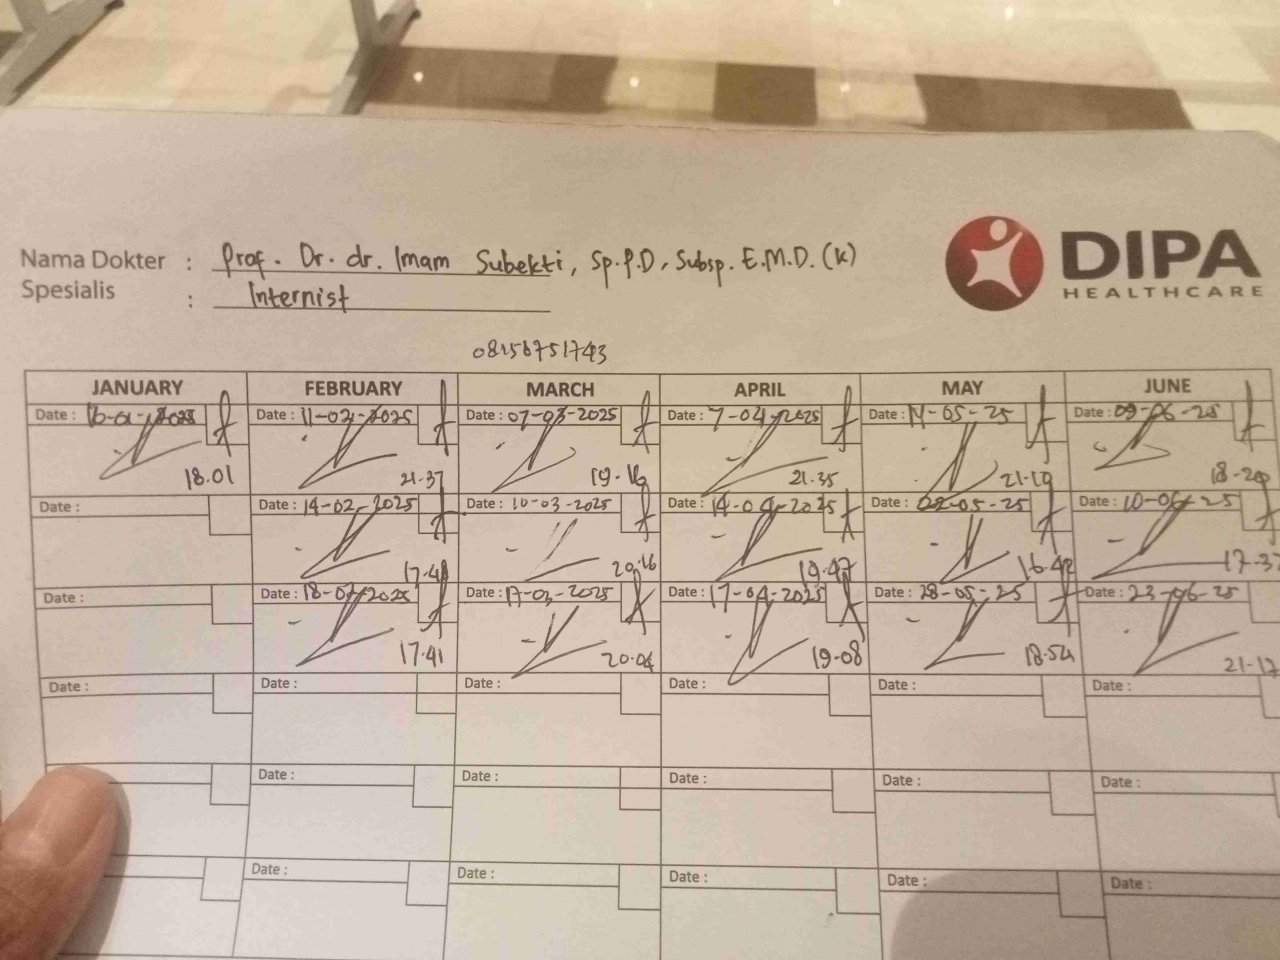 DIPA
HEALTHCARE
Nama Dokter : Prof. Dr. dr. Imam Subekti, Sp.P.D, Subsp. E.M.D. (K)
Spesialis : Internist
08156751743
JANUARY FEBRUARY MARCH APRIL MAY JUNE
Date : 16-01-2025 Date : 11-02-2025 Date : 07-03-2025 Date : 7-04-2025 Date : 14-05-25 Date : 09-06-25
18.01 21.37 19.16 21.35 21.19 18-20
Date : Date : 14-02-2025 Date : 10-03-2025 Date : 14-04-2025 Date : 22-05-25 Date : 10-06-25
17.41 20.16 19.47 16.42 17.37
Date : Date : 18-02-2025 Date : 17-03-2025 Date : 17-04-2025 Date : 28-05-25 Date : 23-06-25
17.41 20.04 19.08 18.54 21-17
Date : Date : Date : Date : Date : Date :
Date : Date : Date : Date : Date :
Date : Date : Date : Date : Date :